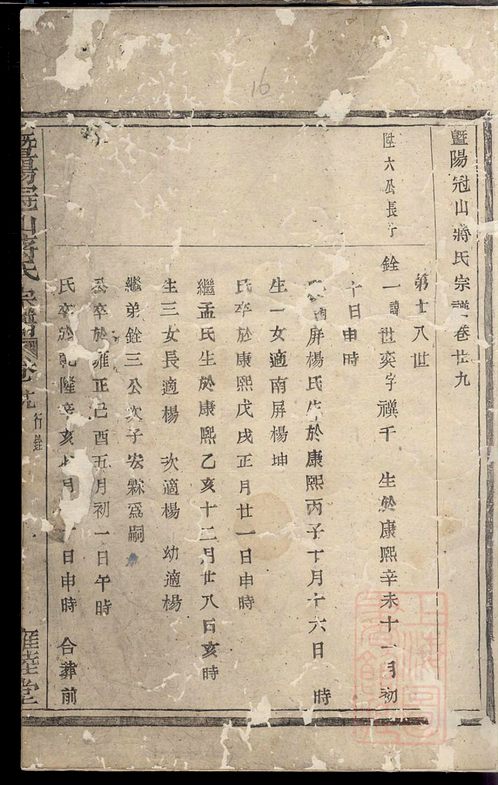 暨陽冠山蔣氏宗譜卷廿九
第十八世
陞六公長子
銓一諱世奕字禩千 生於康熙辛未十一月初
十日申時
南屏楊氏生於康熙丙子十月十六日 時
生一女適南屏楊坤
氏卒於康熙戊戌正月廿一日申時
繼孟氏生於康熙乙亥十二月廿八日亥時
生三女長適楊 次適楊 幼適楊
繼弟銓三公次子宏霖爲嗣
公卒於雍正己酉五月初一日午時
氏卒於乾隆辛亥 月 日申時 合葬前
暨陽冠山蔣氏宗譜 卷廿九 行銓 雍睦堂
16